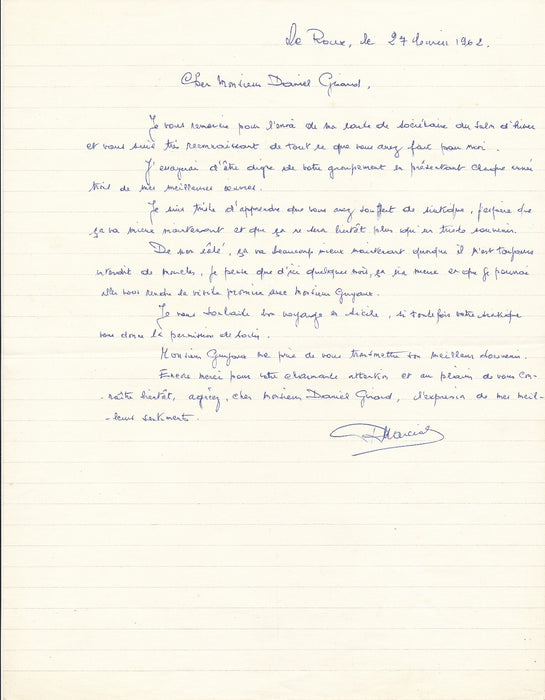 Le Roux, le 27 février 1962.
Cher Monsieur Daniel Girard,
Je vous remercie pour l'envoi de ma carte de Sociétaire du Salon d'hiver
et vous suis très reconnaissant de tout ce que vous avez fait pour moi.
J'essayerai d'être digne de votre groupement en présentant chaque année
trois de mes meilleures œuvres.
Je suis triste d'apprendre que vous avez souffert de sciatique, j'espère que
ça va mieux maintenant et que ça ne sera bientôt plus qu'un triste souvenir.
De mon côté, ça va beaucoup mieux maintenant quoique il m'est toujours
interdit de marcher, je pense que d'ici quelques mois, ça ira mieux et que je pourrai
aller vous rendre la visite promise avec Monsieur Guyaux.
Je vous souhaite bon voyage en Sicile, si toutefois votre sciatique
vous donne la permission de sortir.
Monsieur Guyaux me prie de vous transmettre son meilleur souvenir.
Encore merci pour votre charmante attention et au plaisir de vous con-
-naître bientôt, agréez, cher Monsieur Daniel Girard, l'expression de mes meil-
-leurs sentiments.
Marcial